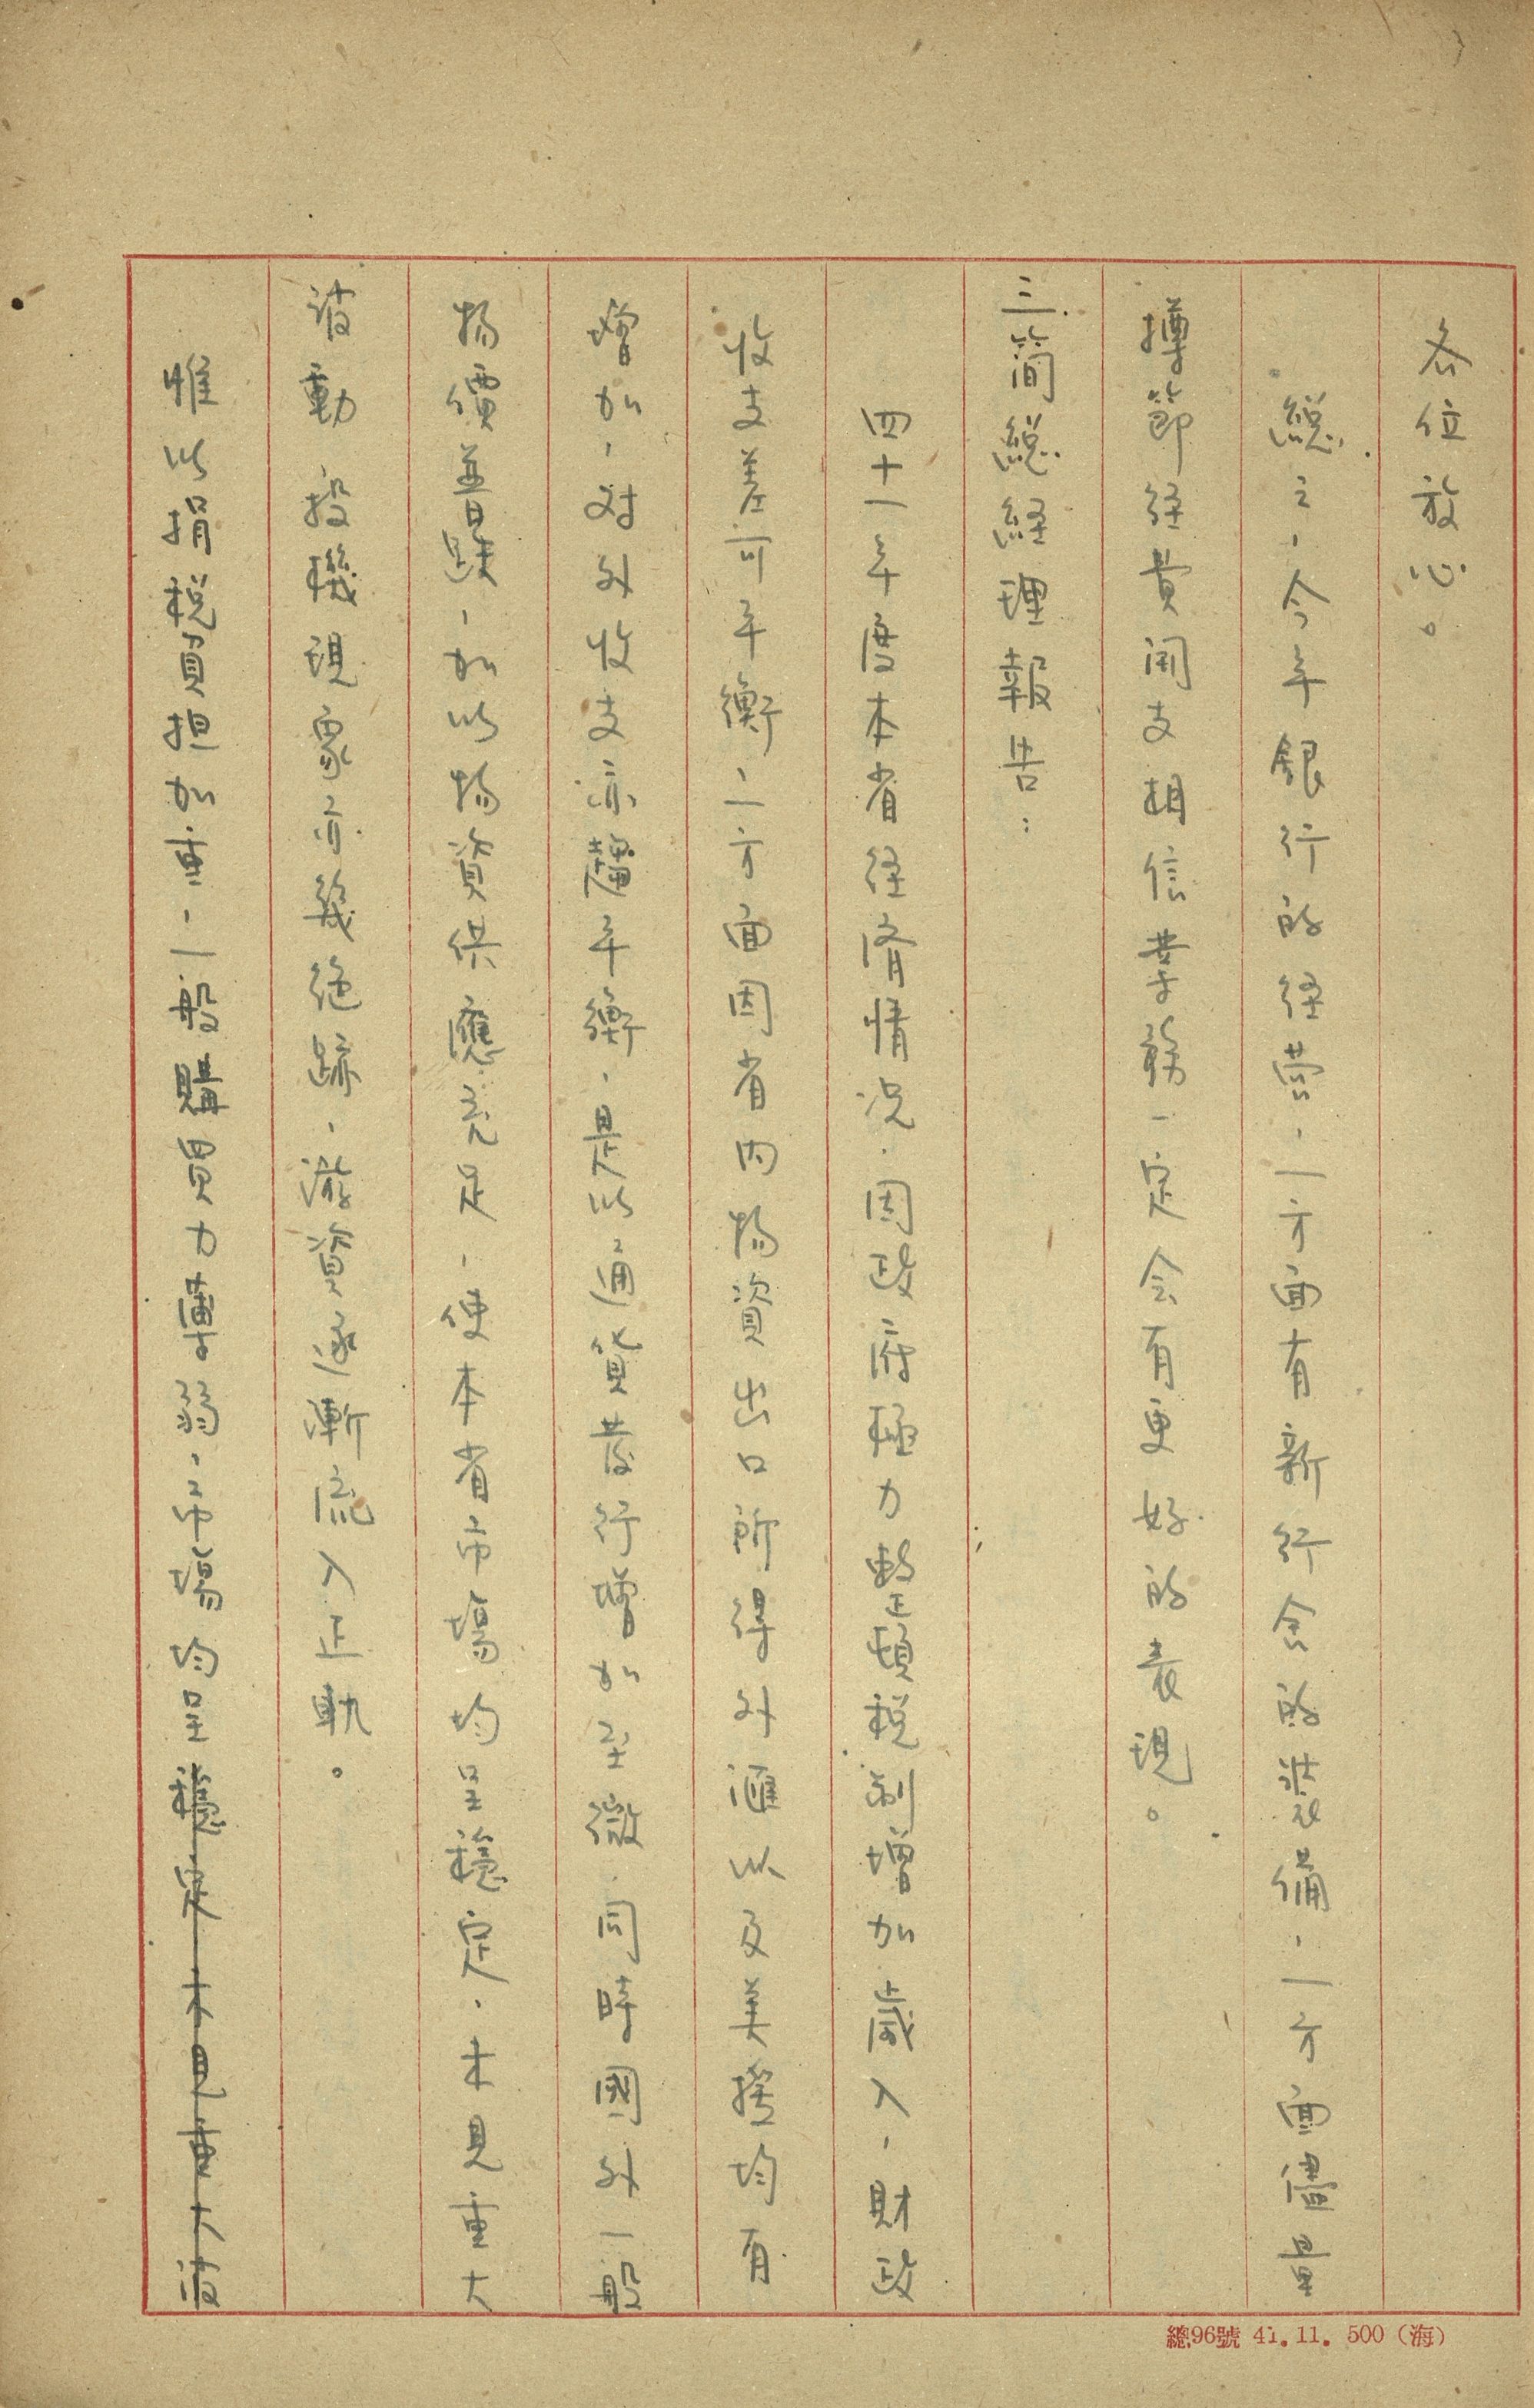 各位放心。
總之，今年銀行的経营，一方面有新行舍的装備，一方面儘量
撙節経費開支相信業務一定会有更好的表現。
三簡総経理報告：
四十一年度本省経济情况，因政府極力整頓税制增加歲入，財政
收支差可平衡，一方面因省内物資出口所得外滙以及美援均有
增加，对外收支亦藉平衡，是以通貨發行增加至微，同時國外一般
物價普跌，加以物資供應充足，使本省市場均呈穩定，未見重大
波動，投機現象亦幾絶跡，游資逐漸流入正軌。
惟以捐税負担加重，一般購買力薄弱，市場均呈穩定未見重大波
總96號 41.11. 500（海）